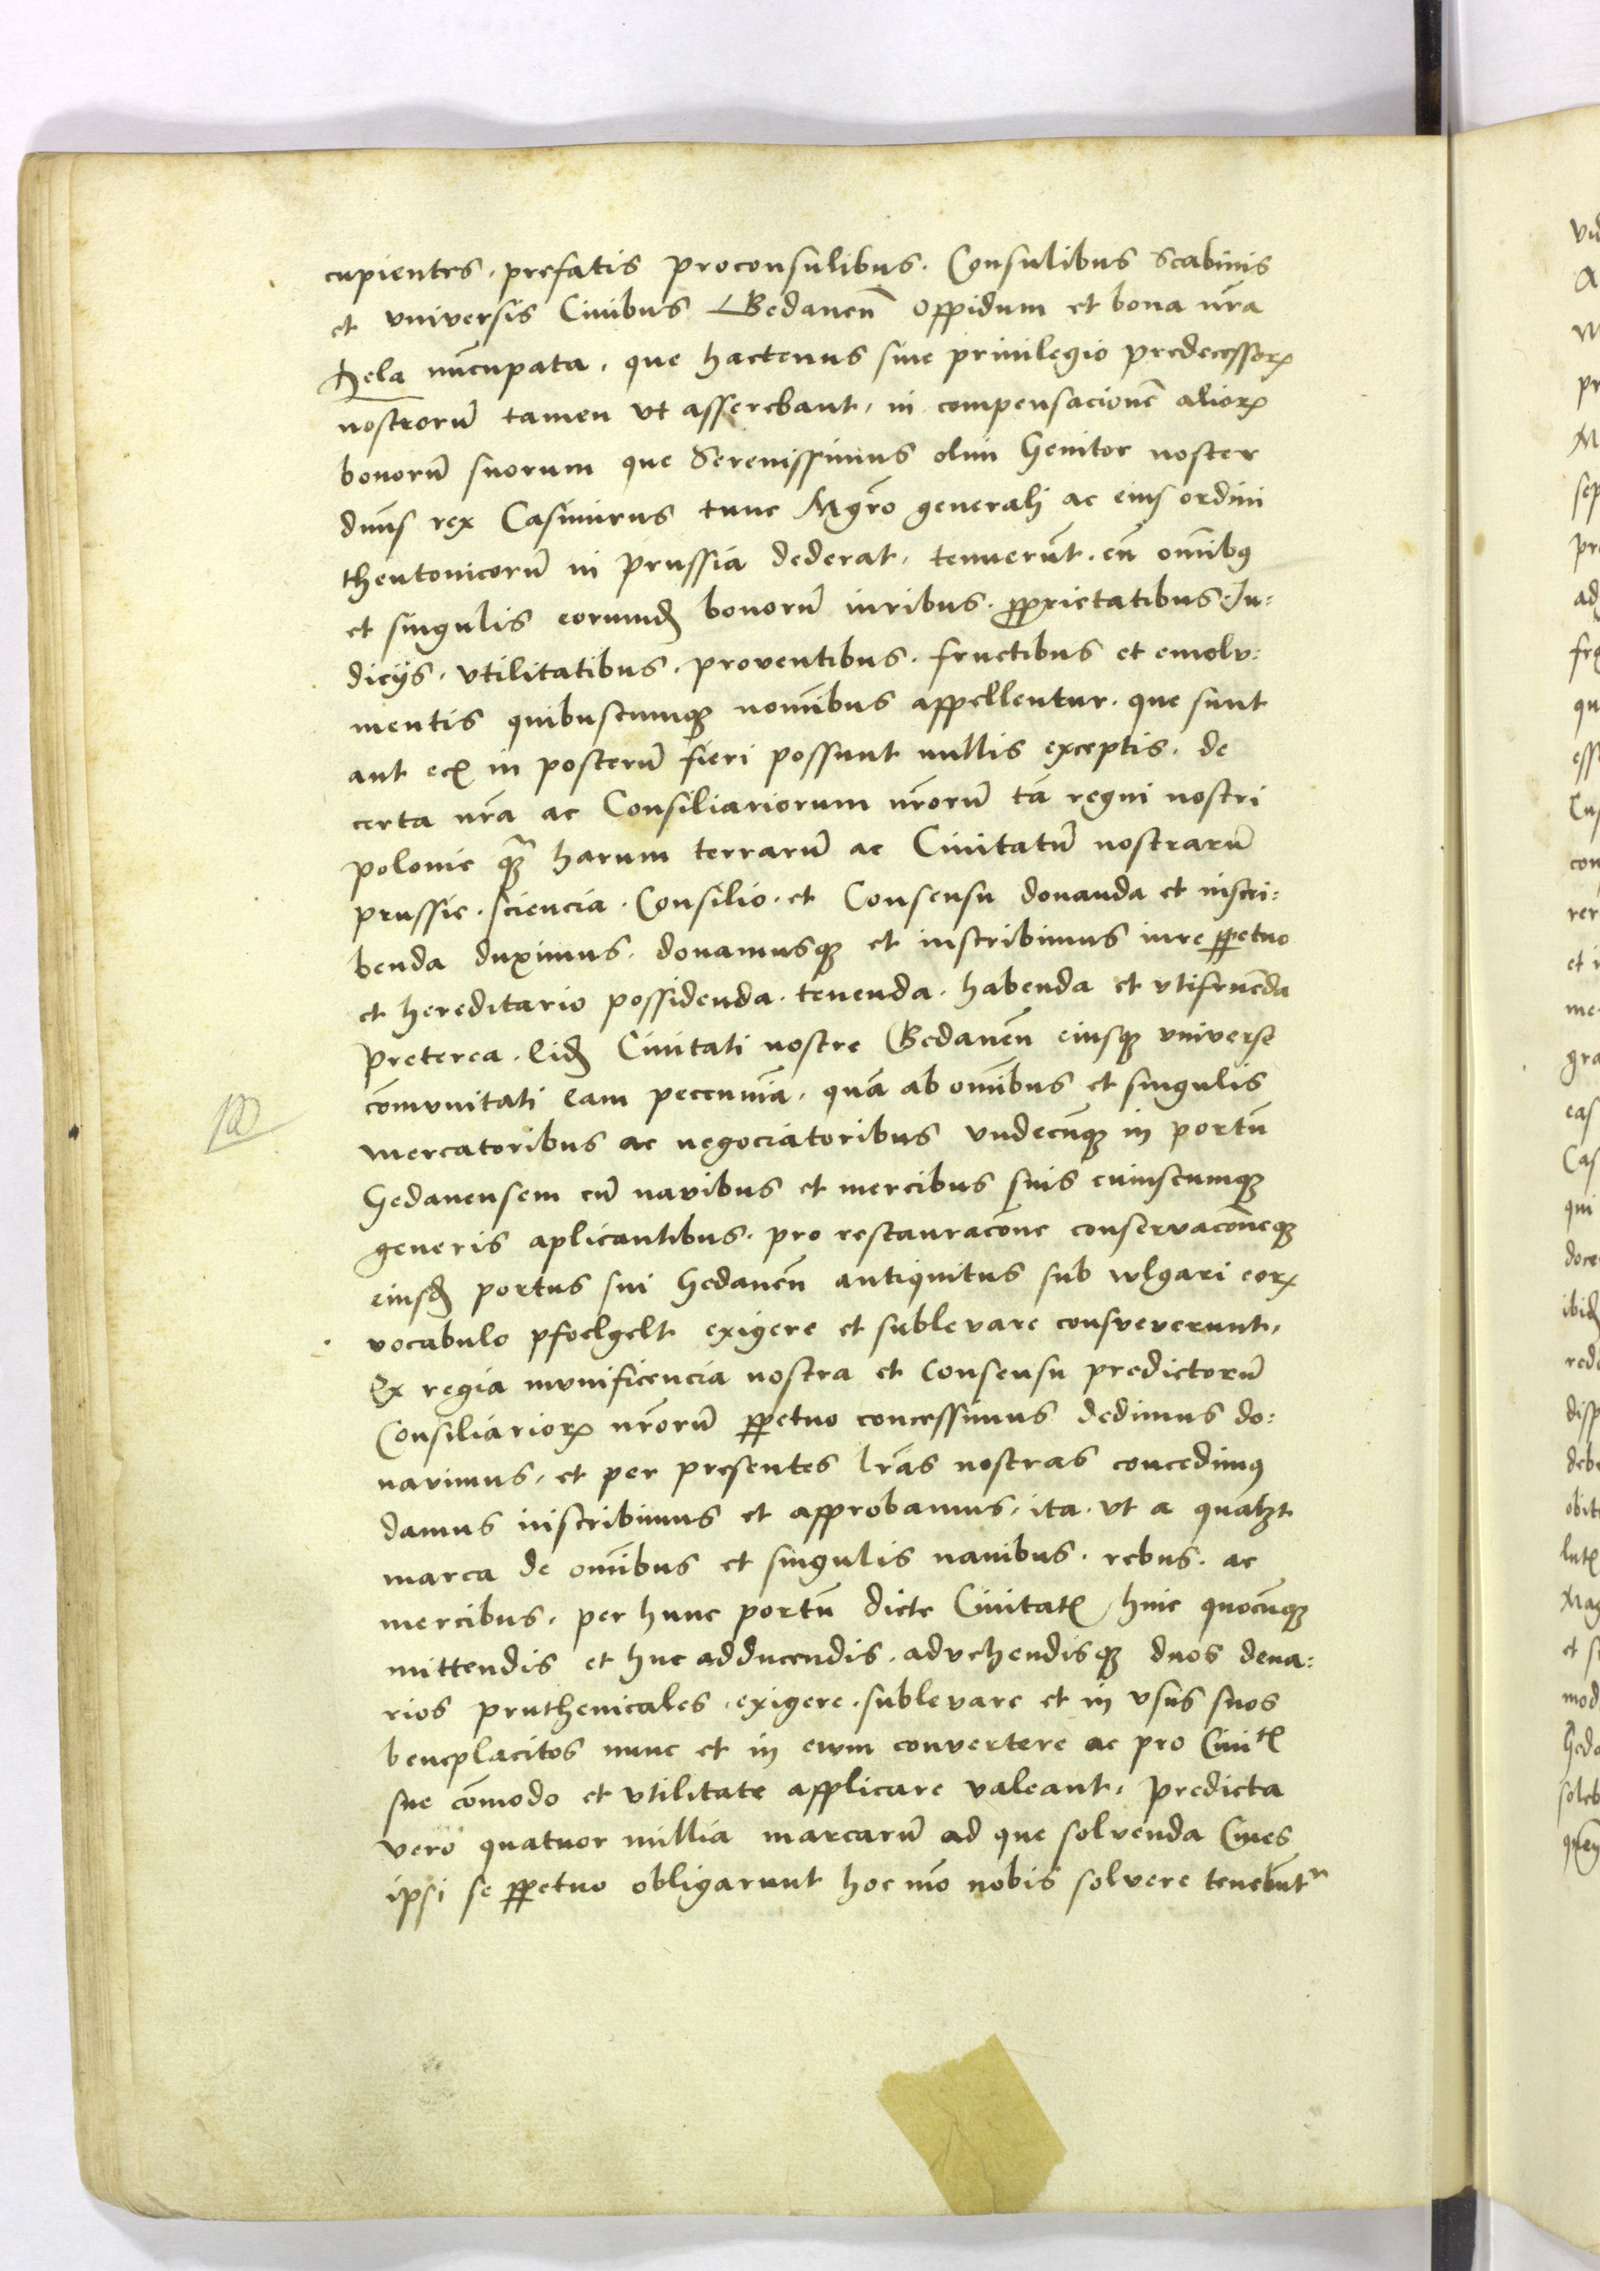 cupientes. prefatis proconsulibus. Consulibus Scabinis
et vniversis Ciuibus Gedanen̄ Oppidum et bona nr̄a
Hela nūcupata. que hactenus sine priuilegio predecessoꝝ
nostrorū tamen vt asserebant. in compensacionē alioꝝ
bonorū suorum que Serenissimus olim Genitor noster
dn̄us rex Casimirus tunc Mgr̄o generali ac eius ordini
theutonicorū in prussia dederat. tenuerūt. cū om̄ibꝫ
et singulis eorundē bonorū iuribus. ꝓprietatibus. Iu:
dicijs. vtilitatibus. proventibus. fructibus et emolu:
mentis quibuscumqꝫ nomībus appellentur. que sunt
aut ecꝫ in posterū fieri possunt nullis exceptis. de
certa nr̄a ac Consiliariorum nr̄orū tā regni nostri
polonie qꝫ̄ harum terrarū ac Ciuitatū nostrarū
prussie. sciencia. Consilio. et Consensu donanda et inscri:
benda duximus. donamusqꝫ et inscribimus iure ꝑpetuo
et hereditario possidenda. tenenda. habenda et vtifruēda
preterea. Eidē Ciuitati nostre Gedanen̄ eiusqꝫ vniverse
cōmvnitati eam peccuniā. quā ab om̄ibus et singulis
mercatoribus ac negociatoribus vndecūqꝫ in portū
Gedanensem cū navibus et mercibus suis cuiuscumqꝫ
generis aplicantibus. pro restauracōne conservacōneqꝫ
eiusdē portus sui Gedanen̄ antiquitus sub wlgari eoꝝ
vocabulo pfoelgelt exigere et sublevare consveverunt.
Ex regia mvnificencia nostra et Consensu predictorū
Consiliarioꝝ nr̄orū ꝑpetuo concessimus dedimus do:
navimus. et per presentes lr̄as nostras concedimꝰ
damus inscribimus et approbamus. ita. vt a qualꝫt
marca de om̄ibus et singulis navibus. rebus. ac
mercibus. per hunc portū dicte Ciuitatꝫ hinc quocūqꝫ
mittendis et huc adducendis. advehendisqꝫ duos dena:
rios pruthenicales. exigere. sublevare et in vsus suos
beneplacitos nunc et in ewm convertere ac pro Ciuitꝫ
sue cōmodo et vtilitate applicare valeant. Predicta
vero quatuor millia marcarū ad que solvenda Ciues
ipsi se ꝑpetuo obligarunt hoc mō nobis solvere tenebūtr